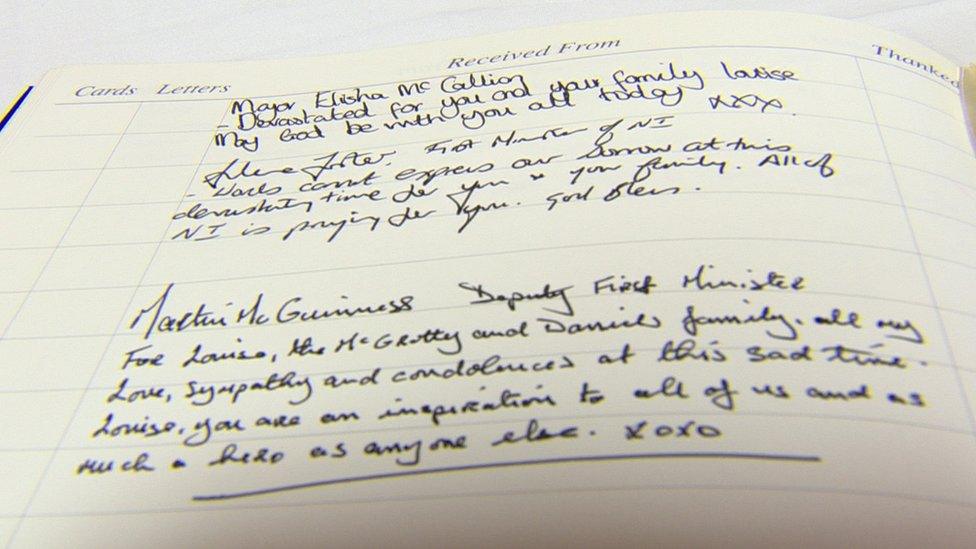 Cards Letters Received From Thanked
Mayor, Elisha Mc Callion
- Devastated for you and your family Louise
May God be with you all today xxx.
Arlene Foster. First Minister of NI
- Words cannot express our sorrow at this
devastating time for you & your family. All of
NI is praying for you. God Bless.
Martin McGuinness Deputy First Minister
For Louise, the McGrotty and Daniels family, all my
Love, Sympathy and condolences at this sad time.
Louise, you are an inspiration to all of us and as
much a hero as anyone else. xoxo